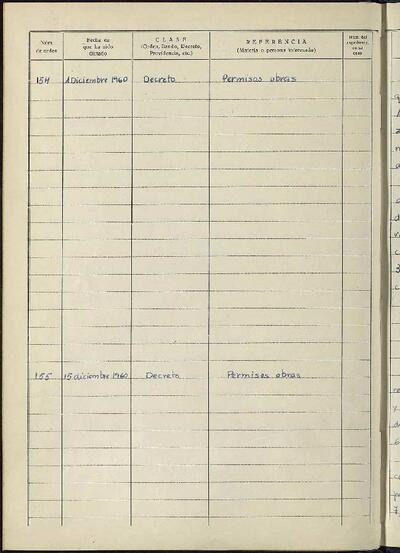 Núm. de orden
Fecha en que ha sido dictado
CLASE
(Orden, Bando, Decreto, Providencia, etc.)
REFERENCIA
(Materia o persona interesada)
Núm. del expediente, en su caso
154 1 Diciembre 1960 Decreto Permisos obras
155 15 diciembre 1960 Decreto Permisos obras